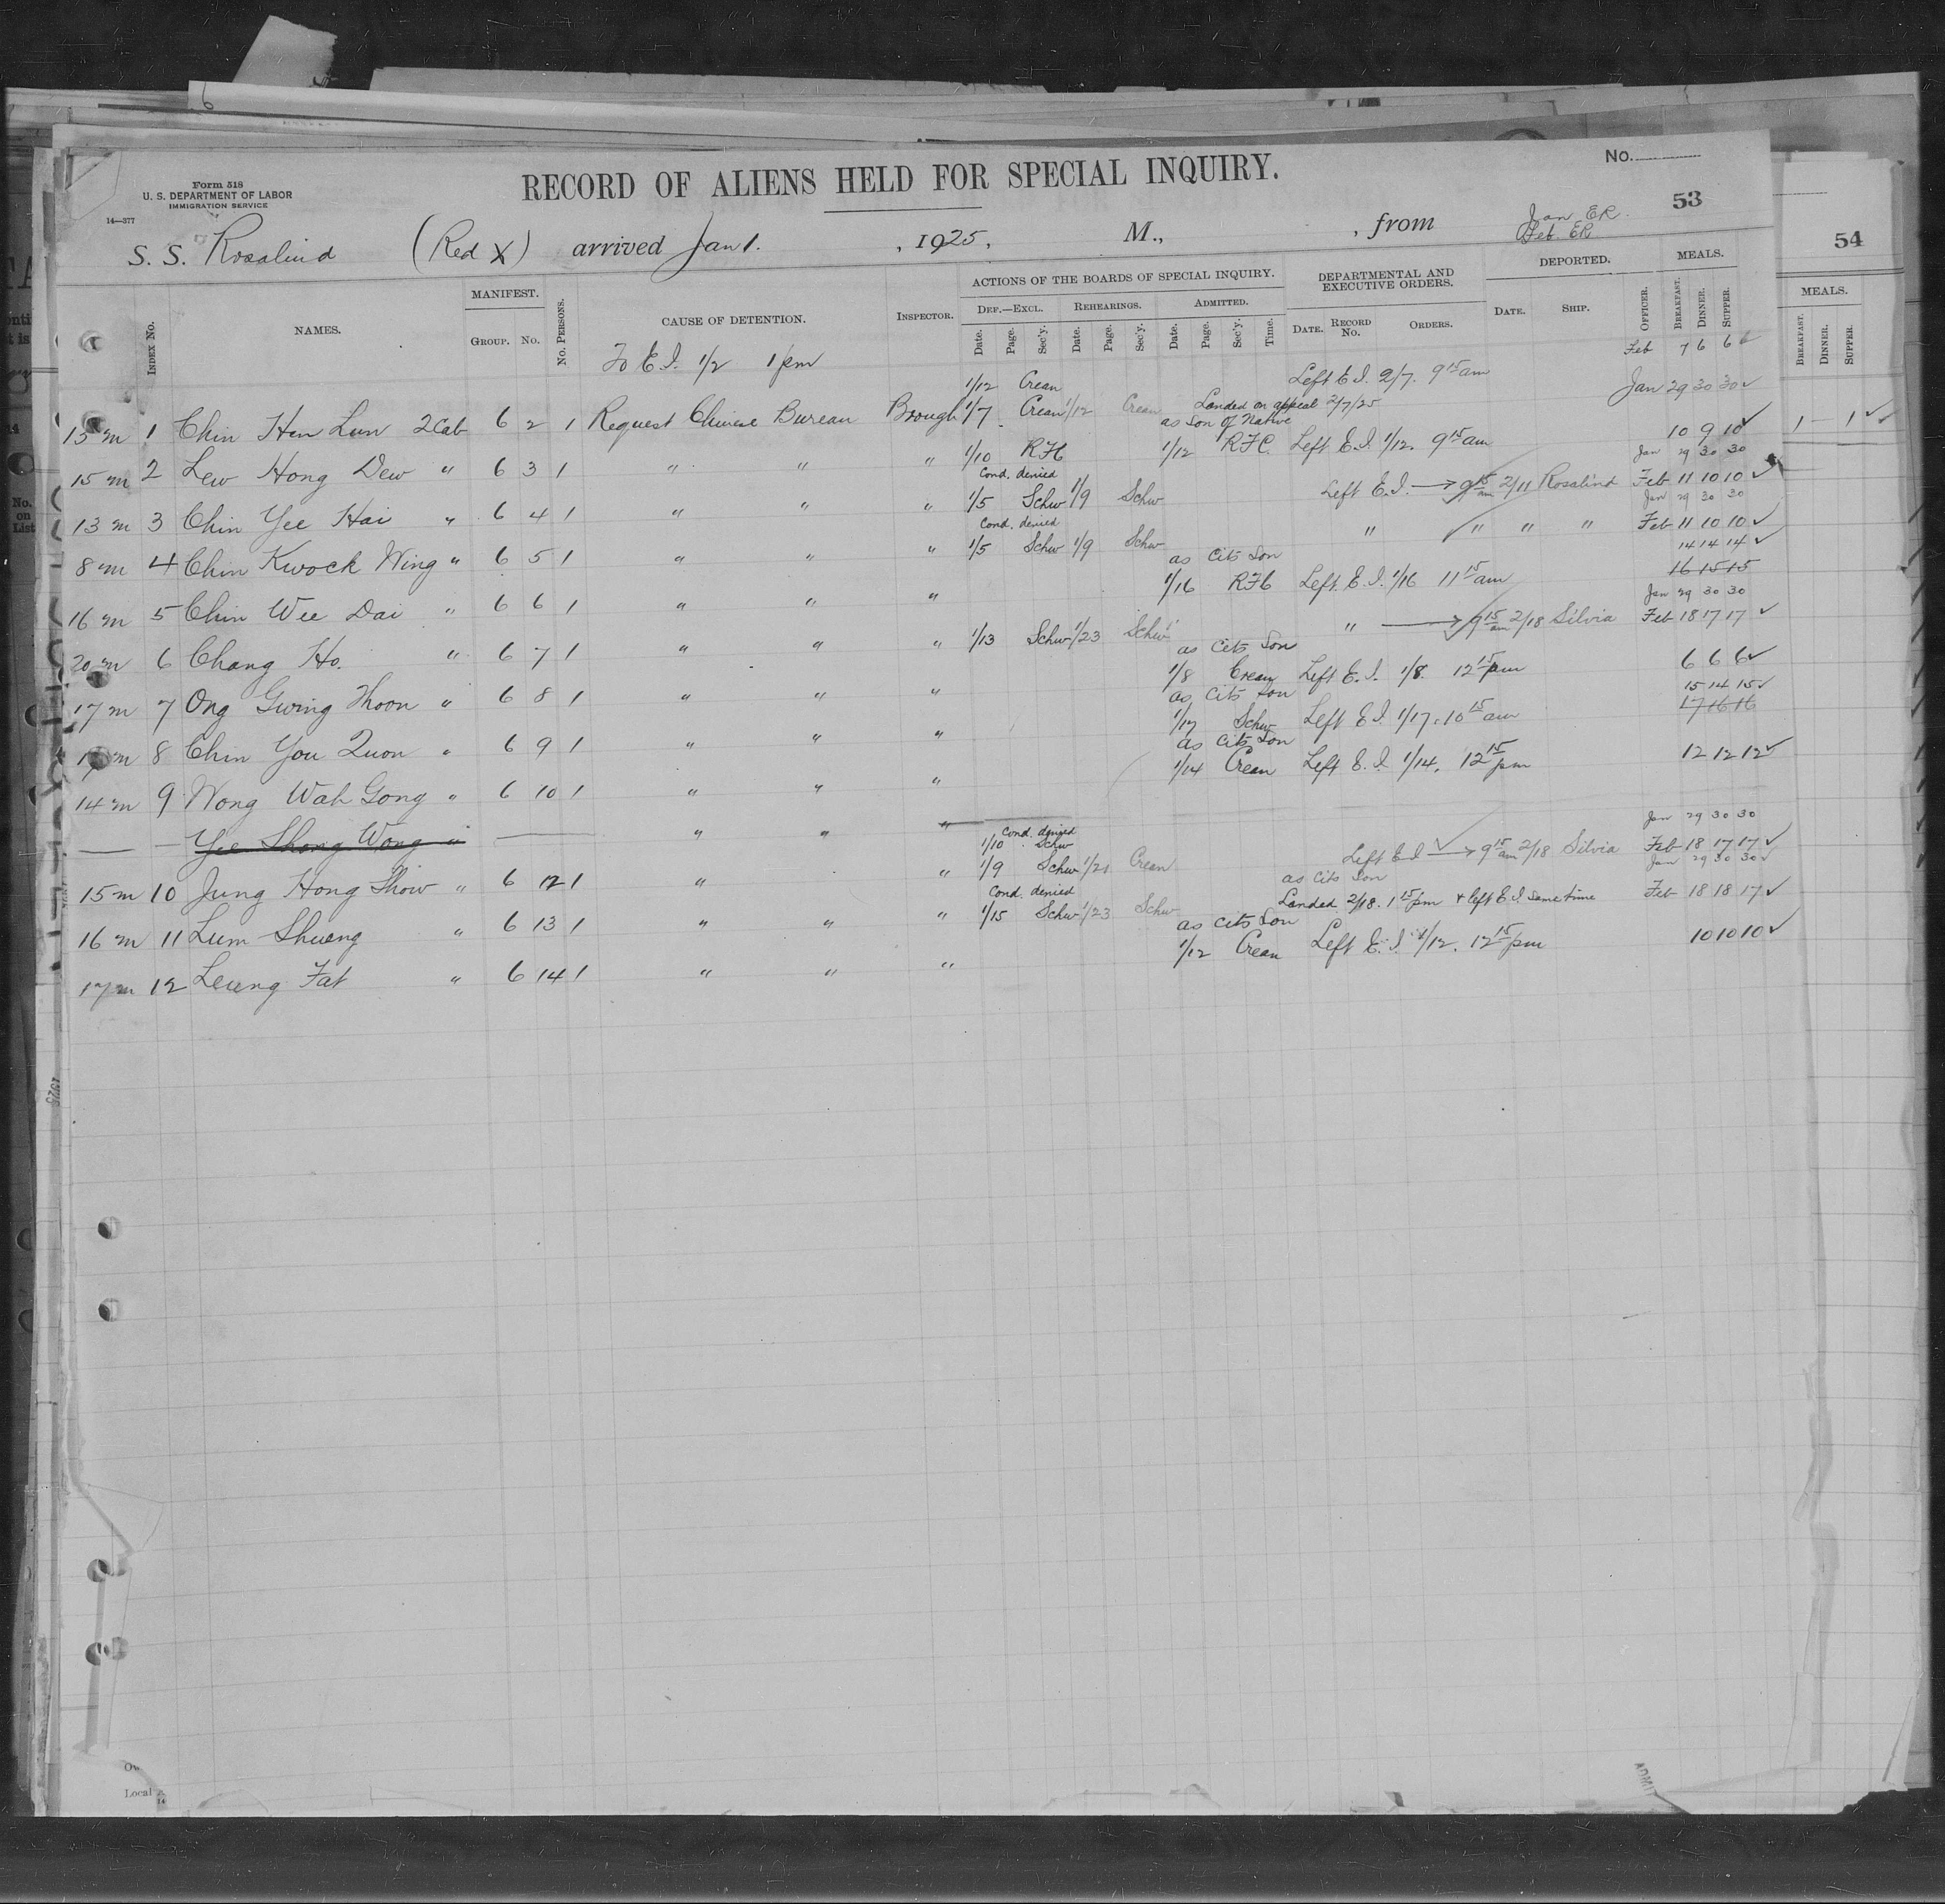 Form 518
U. S. DEPARTMENT OF LABOR
IMMIGRATION SERVICE
14—377
RECORD OF ALIENS HELD FOR SPECIAL INQUIRY.
No.
53
S. S. Rosalind (Red X) arrived Jan 1. , 1925, M., , from
Jan ER.
Feb. ER
54
INDEX No. NAMES. MANIFEST. GROUP. No. No. PERSONS. CAUSE OF DETENTION. INSPECTOR. ACTIONS OF THE BOARDS OF SPECIAL INQUIRY. DEF.—EXCL. Date. Page. Sec'y. REHEARINGS. Date. Page. Sec'y. ADMITTED. Date. Page. Sec'y. Time. DEPARTMENTAL AND EXECUTIVE ORDERS. DATE. RECORD No. ORDERS. DEPORTED. DATE. SHIP. OFFICER. MEALS. BREAKFAST. DINNER. SUPPER.
MEALS. BREAKFAST. DINNER. SUPPER.
To E.I. 1/2 1 pm
Feb 7 6 6
1/12 Crean Left E I. 2/7. 9 15 am Jan 29 30 30 ✓
Landed on appeal 2/7/25
13 m 1 Chin Hen Lun 2 Cab 6 2 1 Request Chinese Bureau Brough 1/7 Crean 1/12 Crean as Son of Native
10 9 10 ✓ 1 — 1 ✓
15 m 2 Lew Hong Dew " 6 3 1 " " " 1/10 RFC 1/12 RFC Left E.I. 1/12. 9 15 am
Jan 29 30 30
Cond. denied
13 m 3 Chin Yee Hai " 6 4 1 " " " 1/5 Schw 1/9 Schw Left E.I. → 9 15 am 2/11 Rosalind Feb 11 10 10 ✓
Jan 29 30 30
Cond. denied
8 m 4 Chin Kwock Wing " 6 5 1 " " " 1/5 Schw 1/9 Schw " " " " Feb 11 10 10 ✓
as Cits Son 14 14 14 ✓
16 m 5 Chin Wee Dai " 6 6 1 " " " 1/16 RFC Left E.I. 1/16 11 15 am 16 15 15
Jan 29 30 30
20 m 6 Chang Ho. " 6 7 1 " " " 1/13 Schw 1/23 Schw " → 9 15 am 2/18 Silvia Feb 18 17 17 ✓
as Cits Son
17 m 7 Ong Gwing Thoon " 6 8 1 " " " 1/8 Crean Left E.I. 1/8. 12 15 pm 6 6 6 ✓
as Cits Son 15 14 15 ✓
m 8 Chin You Quon " 6 9 1 " " " 1/17 Schw Left E.I. 1/17. 10 15 am 17 16 16
as Cits Son
14 m 9 Wong Wah Gong " 6 10 1 " " " 1/14 Crean Left E.I. 1/14. 12 15 pm 12 12 12 ✓
— — Yee Shong Wong " — " " "
Cond. denied Jan 29 30 30
1/10 Schw
15 m 10 Jung Hong Show " 6 12 1 " " 1/9 Schw 1/21 Crean Left E I → 9 15 am 2/18 Silvia Feb 18 17 17 ✓
Cond. denied as Cits Son Jan 29 30 30 ✓
16 m 11 Lum Shueng " 6 13 1 " " " 1/15 Schw 1/23 Schw Landed 2/18. 1 15 pm + left E.I. same time Feb 18 18 17 ✓
as Cits Son
17 m 12 Leung Fat " 6 14 1 " " " 1/12 Crean Left E.I. 1/12. 12 15 pm 10 10 10 ✓
Local